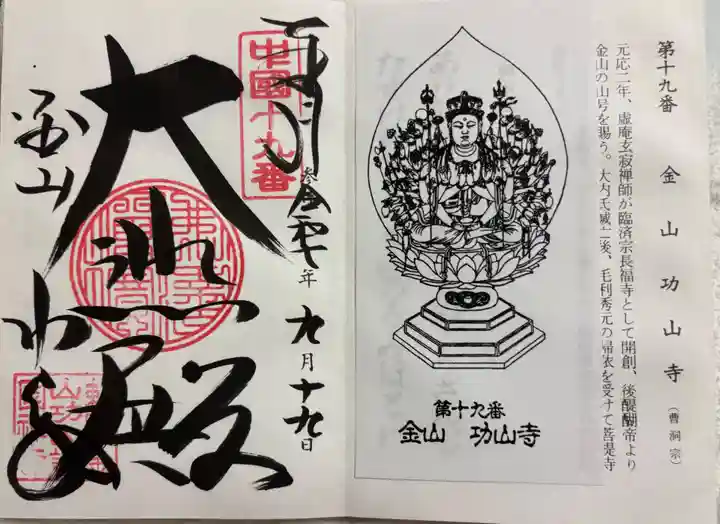 第十九番　金山功山寺（曹洞宗）
元応二年、虚庵玄寂禅師が臨済宗長福寺として開創、後醍醐帝より
金山の山号を賜う。大内氏滅亡後、毛利秀元の帰依を受けて菩提寺
第十九番
金山　功山寺
中國十九番
年九月十九日
大悲殿
金山